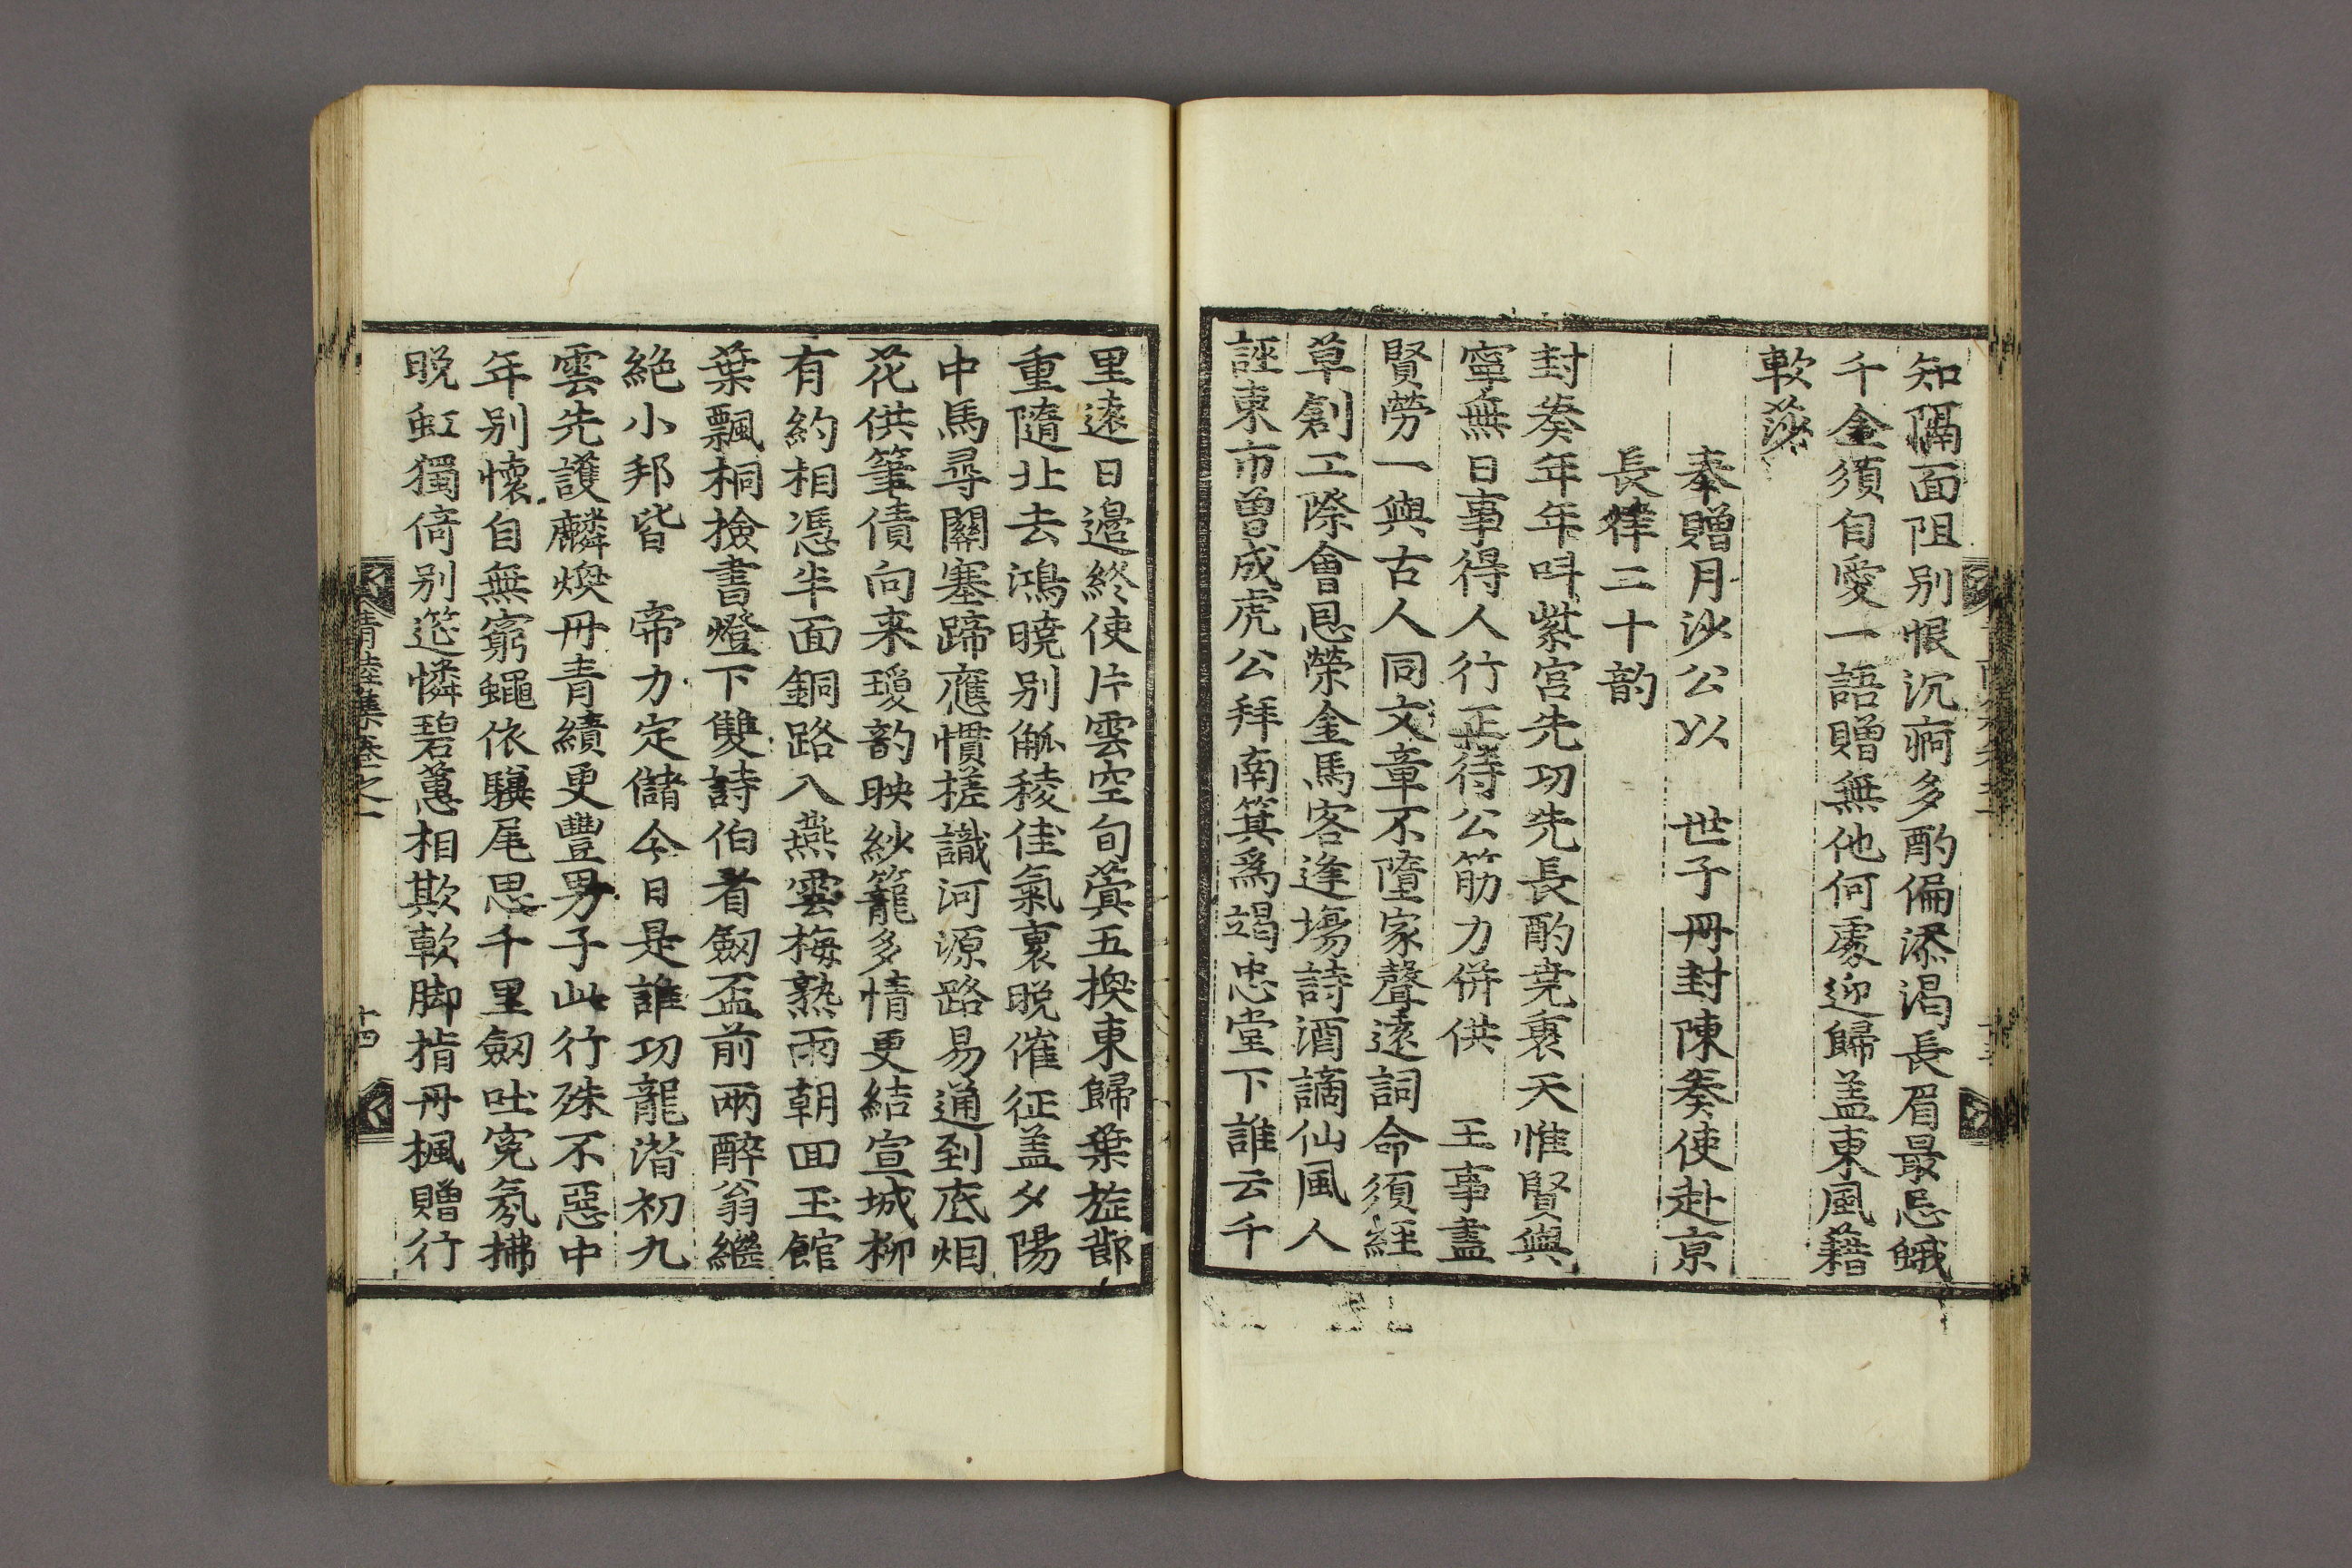 知隔面阻别恨沉痾多酌偏添渴長眉最忌蛾
千金須自愛一語贈無他何處迎歸盖東風藉
軟莎
奉贈月沙公以 世子冊封陳奏使赴京
長律三十韵
封奏年年呌紫宫先功先長酌尭衷天惟賢與
寧無日事得人行正待公筋力併供 王事盡
賢勞一與古人同文章不墮家聲遠詞命須經
草創工際會恩榮金馬客逢塲詩酒謫仙風人
誣東市曽成虎公拜南箕爲竭忠堂下誰云千
里遠日邉終使片雲空旬蓂五換東歸葉㫌節
重隨北去鴻曉别觚稜佳氣裏晩催征盖夕陽
中馬尋關塞蹄應慣槎識河源路易通到底烟
花供筆債向来瓊韵映紗籠多情更結宣城柳
有約相憑半面銅路入燕雲梅熟雨朝囬玉館
葉飄桐撿書燈下雙詩伯看劒盃前兩醉翁繼
絶小邦皆 帝力定儲今日是誰功龍潜初九
雲先護麟煥丹青績更豐男子此行殊不惡中
年别懷自無窮蠅依驥尾思千里劒吐寃氛拂
晩虹獨倚别筵憐碧蕙相欺軟脚指丹楓贈行
青陸集卷之一
十四